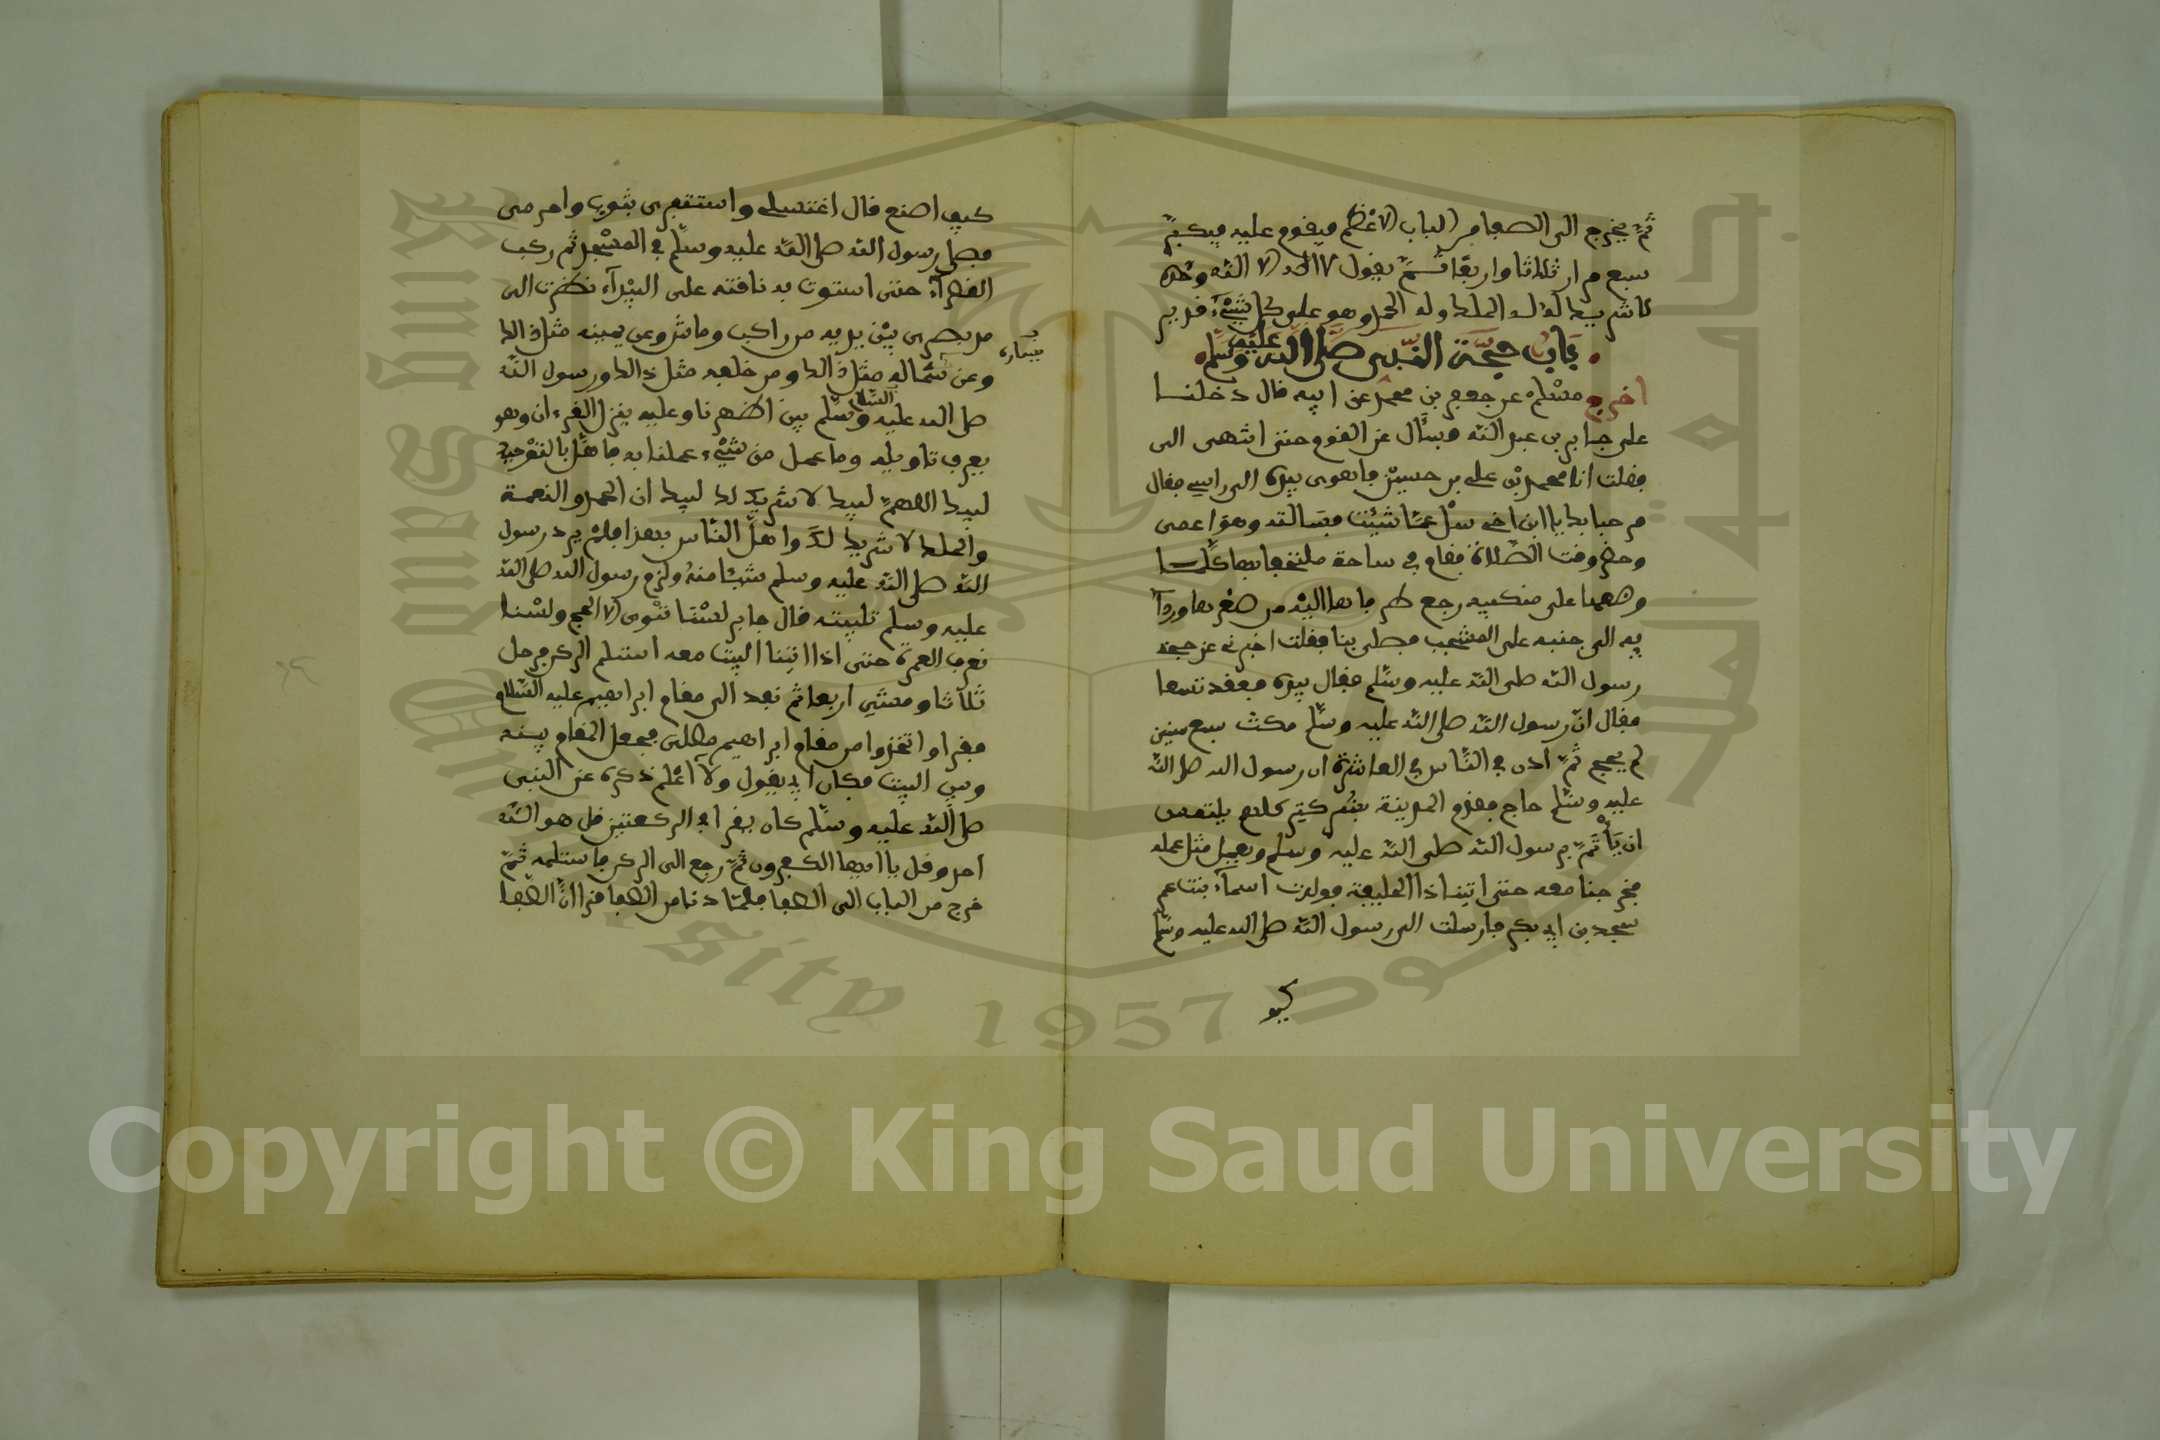 ثمّ يخرج الى الصفا من الباب الاعظم فيقوم عليه فيكبّر
سبع مرار ثلاثا واربعا ثمّ يقول لا اله الا الله وحده
لا شريك له له الملك وله الحمد وهو على كل شيء قدير
باب حجّة النّبي صلّى الله عليه وسلّم
اخرج مسلم عن جعفر بن محمد عن ابيه قال دخلنا
على جابر بن عبد الله فسأل عن القوم حتى انتهى الى
فقلت انا محمد بن علي بن حسين فاهوى بيده الى راسي فقال
مرحبا بك يا ابن اخي سل عمّا شئت فسالته وهو اعمى
وحضر وقت الصّلاة فقام في ساحة ملتحفا بها كلما
وضعها على منكبيه رجع طرفاها اليه من صغرها وردا
يه الى جنبه على المشجب فصلى بنا فقلت اخبرني عن حجة
رسول الله صلى الله عليه وسلّم فقال بيده فعقد تسعا
فقال انّ رسول الله صلى الله عليه وسلّم مكث سبع سنين
لم يحج ثمّ اذن في النّاس في العاشرة ان رسول الله صلى الله
عليه وسلّم حاج فقدم المدينة بشر كثير كلهم يلتمس
ان يأتمّ برسول الله صلى الله عليه وسلم ويعمل مثل عمله
فخرجنا معه حتى اتينا ذا الحليفة فولدت اسمآء بنت عم
محمد بن ابي بكر فارسلت الى رسول الله صلى الله عليه وسلّم
كيف
كيف اصنع قال اغتسلي واستثفري بثوب واحرمي
فصلى رسول الله صلى الله عليه وسلّم في المسجد ثم ركب
القصوآء حتى استوت به ناقته على البيدآء نظرت الى
مد بصري بين يديه من راكب وماش وعن يمينه مثل ذالك
يساره
وعن شماله مثل ذالك ومن خلفه مثل ذالك ورسول الله
صلى الله عليه السلام وسلّم بين اظهرنا وعليه ينزل القرءان وهو
يعرف تاويله وما عمل من شيء عملنا به فاهلّ بالتوحيد
لبيك اللهمّ لبيك لا شريك لك لبيك ان الحمد والنعمة
والملك لا شريك لك واهلّ النّاس بهذا فلم يرد رسول
الله صلى الله عليه وسلم شيئا منه ولزم رسول الله صلى الله
عليه وسلم تلبيته قال جابر لسنا ننوي الا الحج ولسنا
نعرف العمرة حتى اذا اتينا البيت معه استلم الركن فرمل
ثلاثا ومشى اربعا ثم نفد الى مقام ابراهيم عليه السّلام
فقرا واتخذوا من مقام ابراهيم مصلى فجعل المقام بينه
وبين البيت فكان ابي يقول ولا اعلم ذكره عن النبي
صلى الله عليه وسلّم كان يقرا في الركعتين قل هو الله
احد وقل يا ايها الكفرون ثمّ رجع الى الركن فاستلمه ثمّ
خرج من الباب الى الصفا فلمّا دنا من الصفا قرا انّ الصّفا
King Saud University 1957
جامعة الملك سعود
Copyright © King Saud University